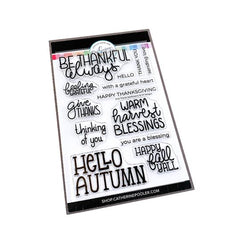 BE THANKFUL
always
HELLO
feeling
grateful
with a grateful heart
HAPPY THANKSGIVING
give
THANKS
WARM
harvest
BLESSINGS
thinking
of you
you are a blessing
HELLO
AUTUMN
HAPPY
fall
Y'ALL
SHOP.CATHERINEPOOLER.COM